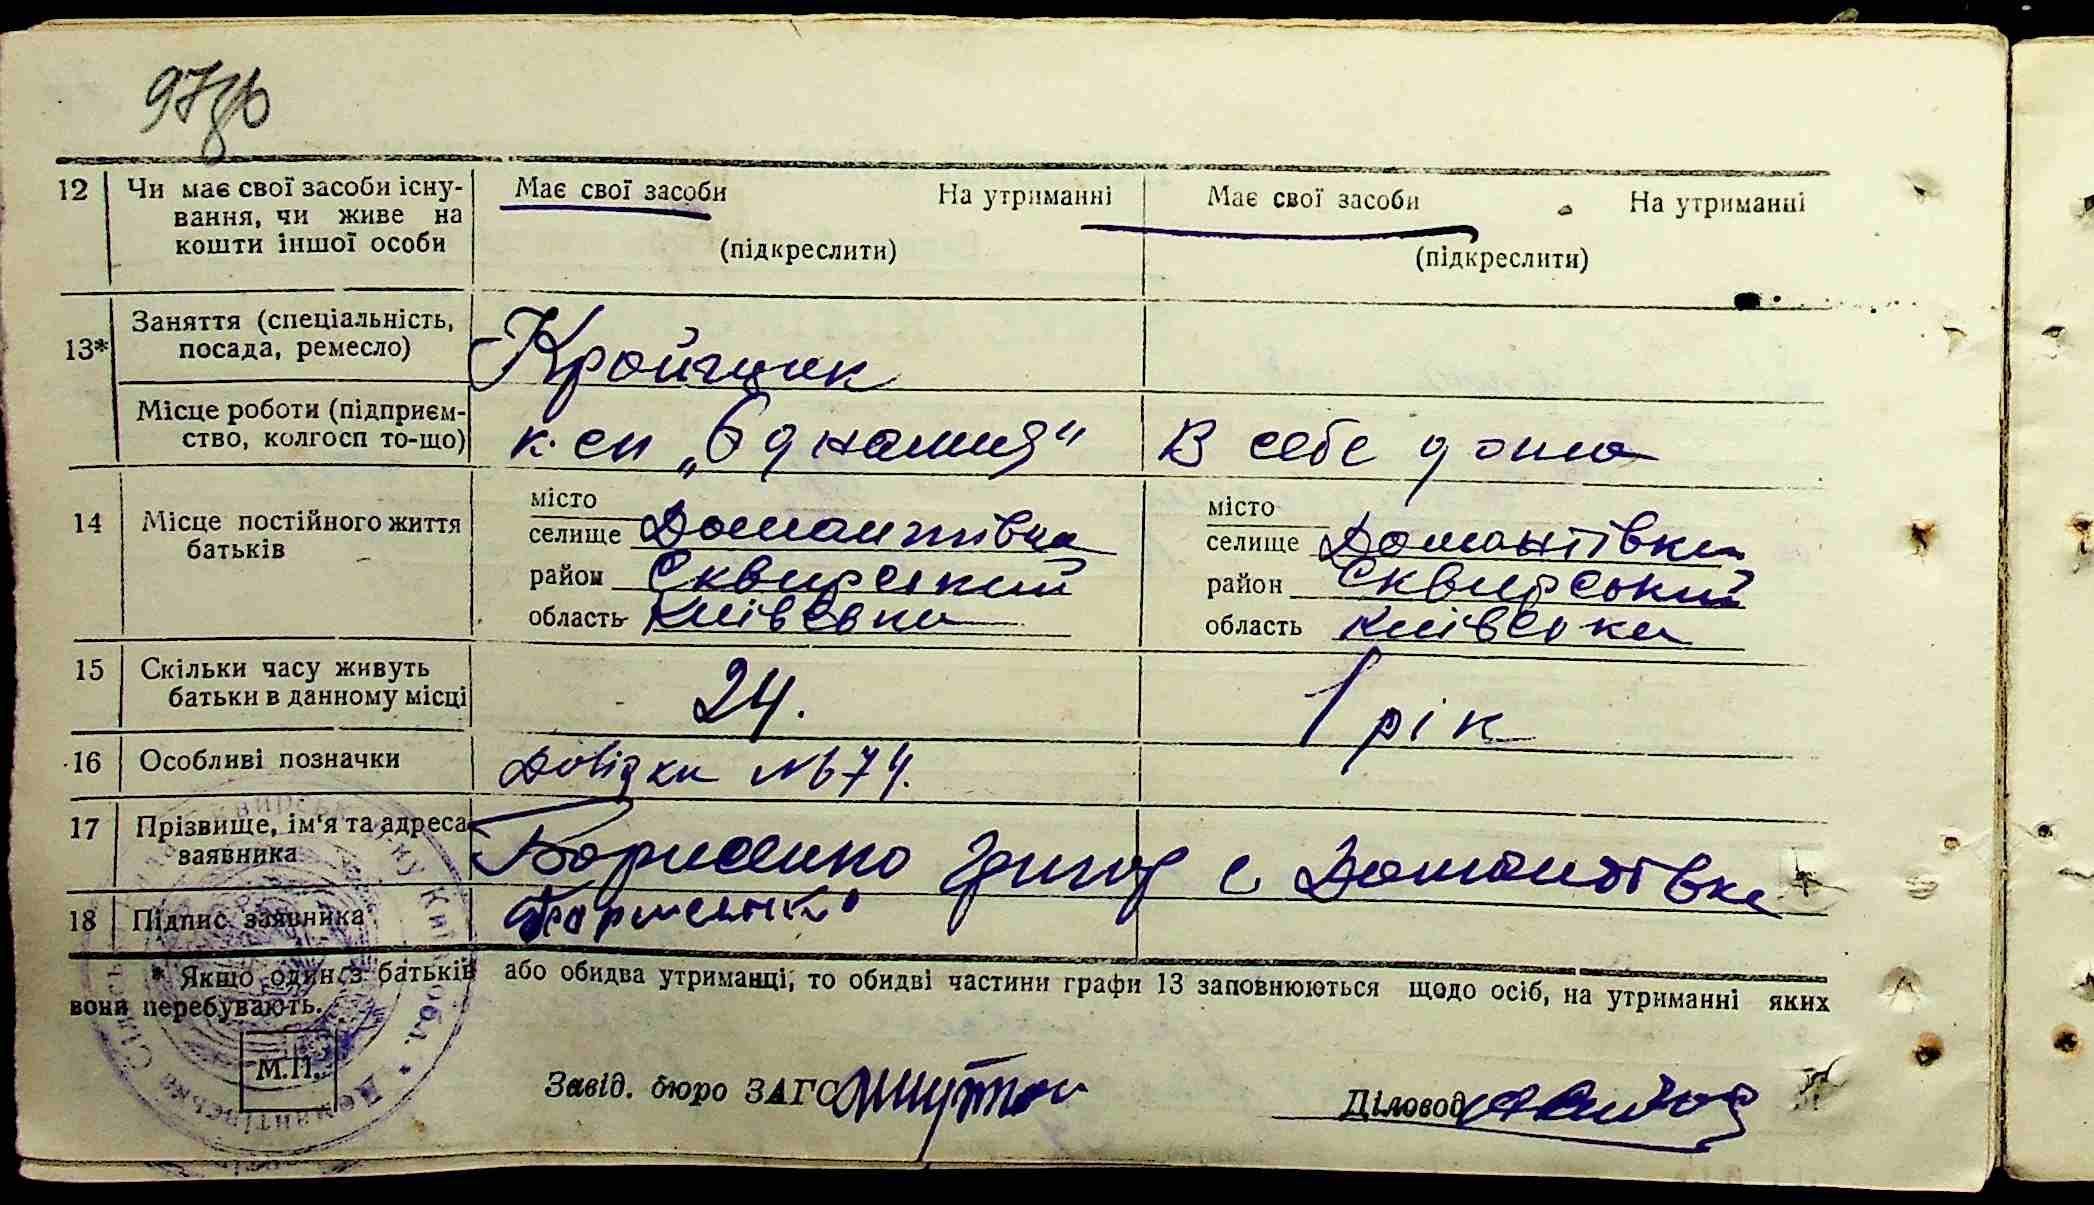 97зв
12 Чи має свої засоби існу- Має свої засоби На утриманні Має свої засоби На утриманні
вання, чи живе на
кошти іншої особи (підкреслити) (підкреслити)
13* Заняття (спеціальність,
посада, ремесло) Кройчик
Місце роботи (підприєм-
ство, колгосп то-що) В себе дома
14 Місце постійного життя
батьків
місто місто
селище Домантівка селище Домантівка
район Сквирський район Сквирський
область Київська область Київська
15 Скільки часу живуть
батьки в данному місці 24. 1 рік
16 Особливі позначки Довідка № 74.
17 Прізвище, ім'я та адреса
заявника Борисенко Григор с Домантівка
18 Підпис заявника Борисенко
* Якщо один з батьків або обидва утриманці, то обидві частини графи 13 заповнюються щодо осіб, на утриманні яких
вони перебувають.
М.П.
Завід. бюро ЗАГС Діловод